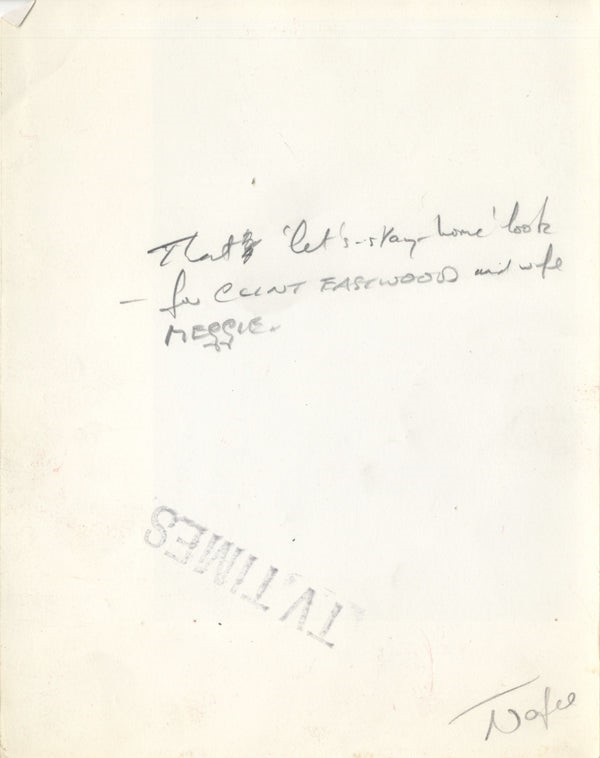 That 'let's-stay-home' look
— for CLINT EASTWOOD and wife
MEGGIE.
TV TIMES